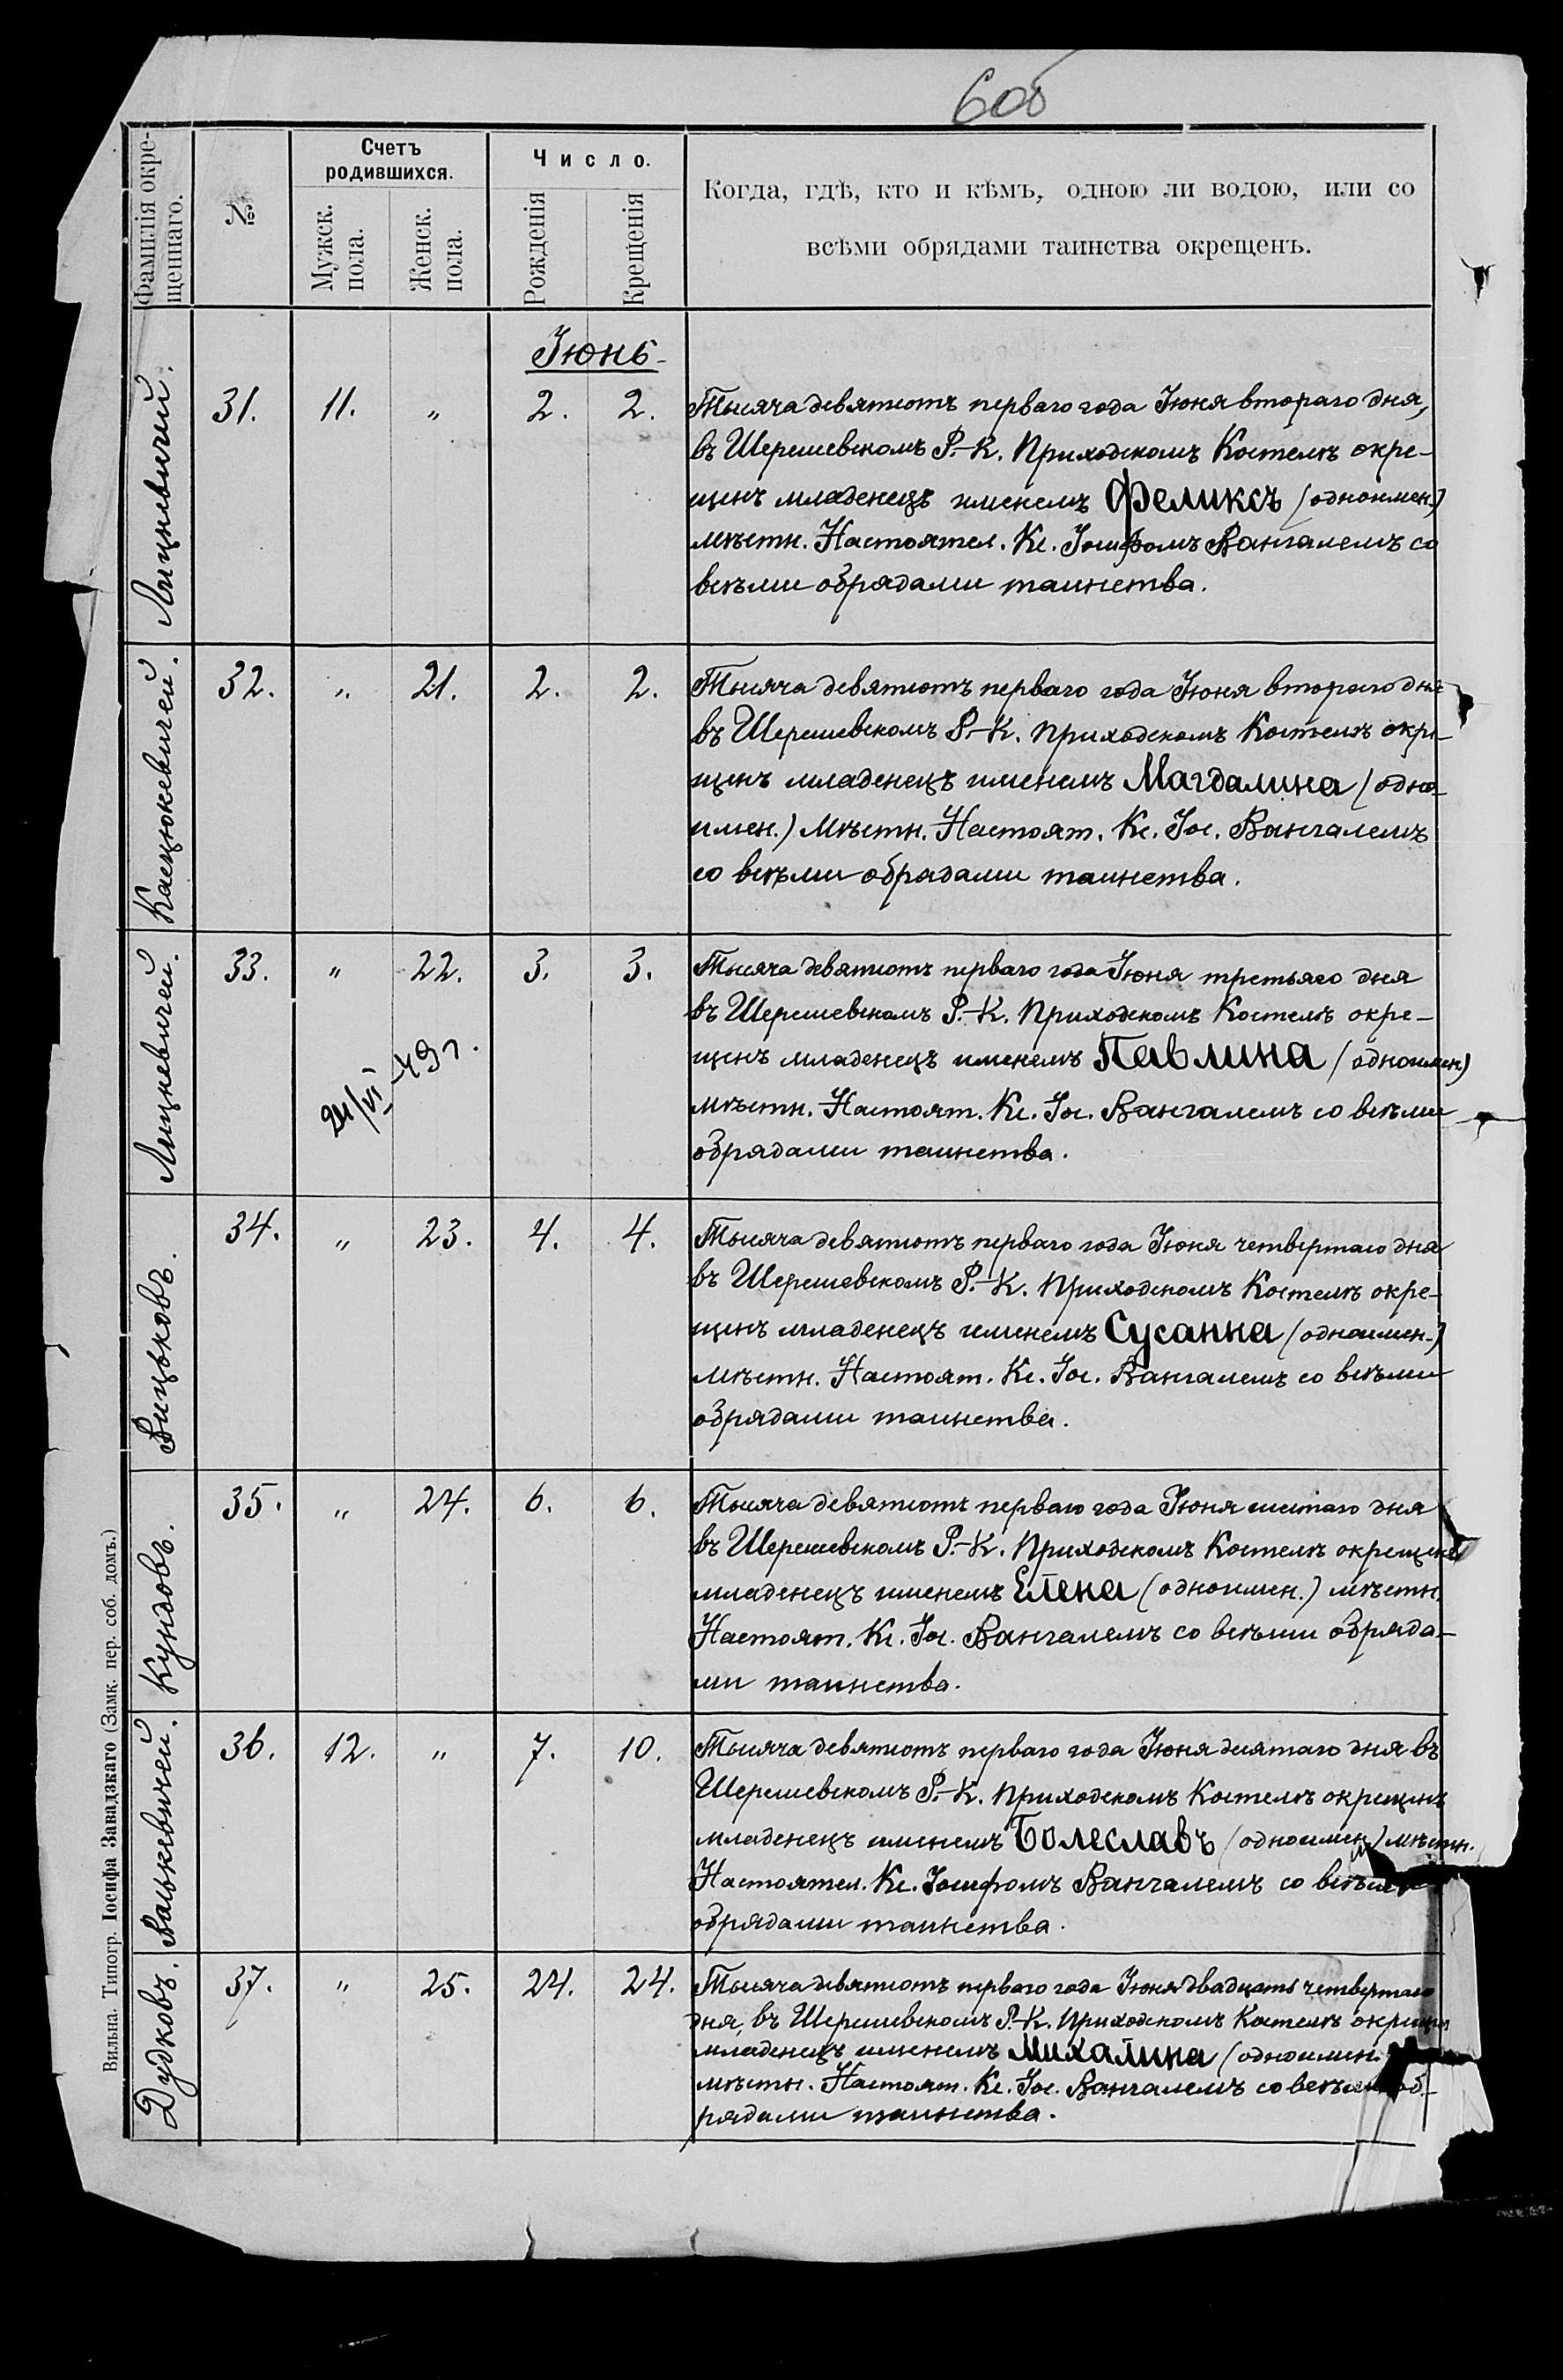 6об
Фамилія окре-
щеннаго.
№
Счетъ
родившихся.
Мужск.
пола.
Женск.
пола.
Число.
Рожденія
Крещенія
Когда, гдѣ, кто и кѣмъ, одною ли водою, или со
всѣми обрядами таинства окрещенъ.
Іюнь
31. 11. „ 2. 2.
Тысяча девятьсотъ перваго года Іюня втораго дня,
въ Шерешевскомъ Р.-К. Приходскомъ Костелѣ окре-
щенъ младенецъ именемъ Феликсъ (одноимен.)
мѣстн. Настоятел. Кс. Іосифомъ Вангалемъ со
всѣми обрядами таинства.
Касцюкевичей.
32. „ 21. 2. 2.
Тысяча девятьсотъ перваго года Іюня втораго дня
въ Шерешевскомъ Р.-К. Приходскомъ Костелѣ окре-
щенъ младенецъ именемъ Магдалина (одно-
имен.) Мѣстн. Настоят. Кс. Іос. Вангалемъ
со всѣми обрядами таинства.
Лицкевичей.
33. „ 22. 3. 3.
24/VI-49 г.
Тысяча девятьсотъ перваго года Іюня третьяго дня
въ Шерешевскомъ Р.-К. Приходскомъ Костелѣ окре-
щенъ младенецъ именемъ Павлина (одноимен.)
мѣстн. Настоят. Кс. Іос. Вангалемъ со всѣми
обрядами таинства.
Вицьковъ.
34. „ 23. 4. 4.
Тысяча девятьсотъ перваго года Іюня четвертаго дня
въ Шерешевскомъ Р.-К. Приходскомъ Костелѣ окре-
щенъ младенецъ именемъ Сусанна (одноимен.)
мѣстн. Настоят. Кс. Іос. Вангалемъ со всѣми
обрядами таинства.
Кундовъ.
35. „ 24. 6. 6.
Тысяча девятьсотъ перваго года Іюня шестаго дня
въ Шерешевскомъ Р.-К. Приходскомъ Костелѣ окрещенъ
младенецъ именемъ Елена (одноимен.) мѣстн.
Настоят. Кс. Іос. Вангалемъ со всѣми обряда-
ми таинства.
Валькевичей.
36. 12. „ 7. 10.
Тысяча девятьсотъ перваго года Іюня десятаго дня въ
Шерешевскомъ Р.-К. Приходскомъ Костелѣ окрещенъ
младенецъ именемъ Болеславъ (одноимен.) мѣстн.
Настоятел. Кс. Іосифомъ Вангалемъ со всѣми
обрядами таинства.
Дудковъ.
37. „ 25. 24. 24.
Тысяча девятьсотъ перваго года Іюня двадцать четвертаго
дня, въ Шерешевскомъ Р.-К. Приходскомъ Костелѣ окрещен
младенецъ именемъ Михалина (одноимен.
мѣстн. Настоят. Кс. Іос. Вангалемъ со всѣми об-
рядами таинства.
Вильна. Типогр. Іосифа Завадзкаго (Замк. пер. соб. домъ.)